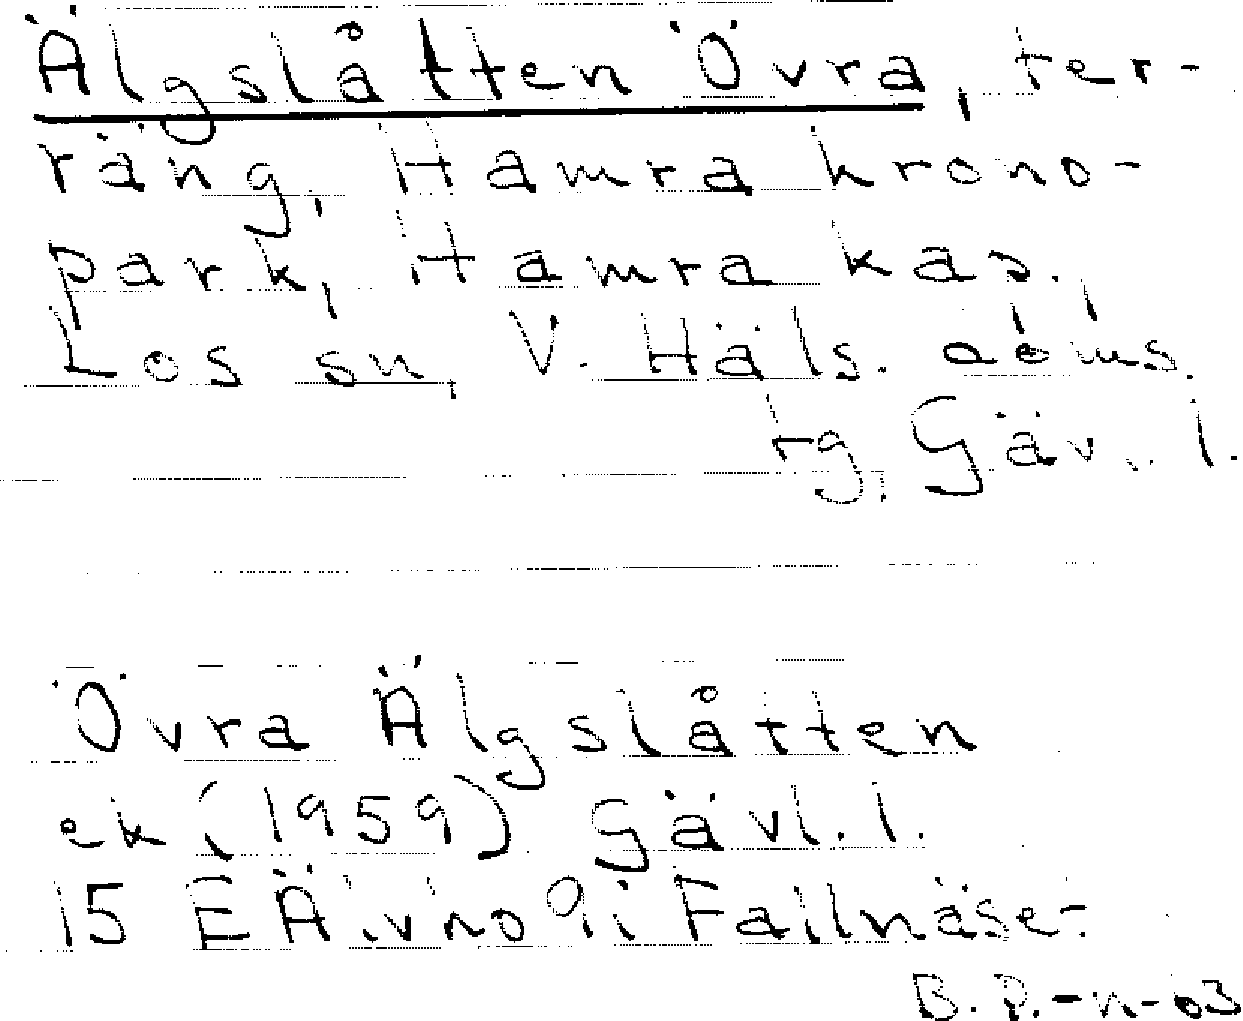 Älgslåtten Övra, ter-
räng, Hamra krono-
park, Hamra kap.,
Los sn, V. Häls. doms.
rg, Gävl. l.
Övra Älgslåtten
ek (1959) Gävl. l.
15 E Ä. vno 9i Fallnäse-
B. P.-n-63